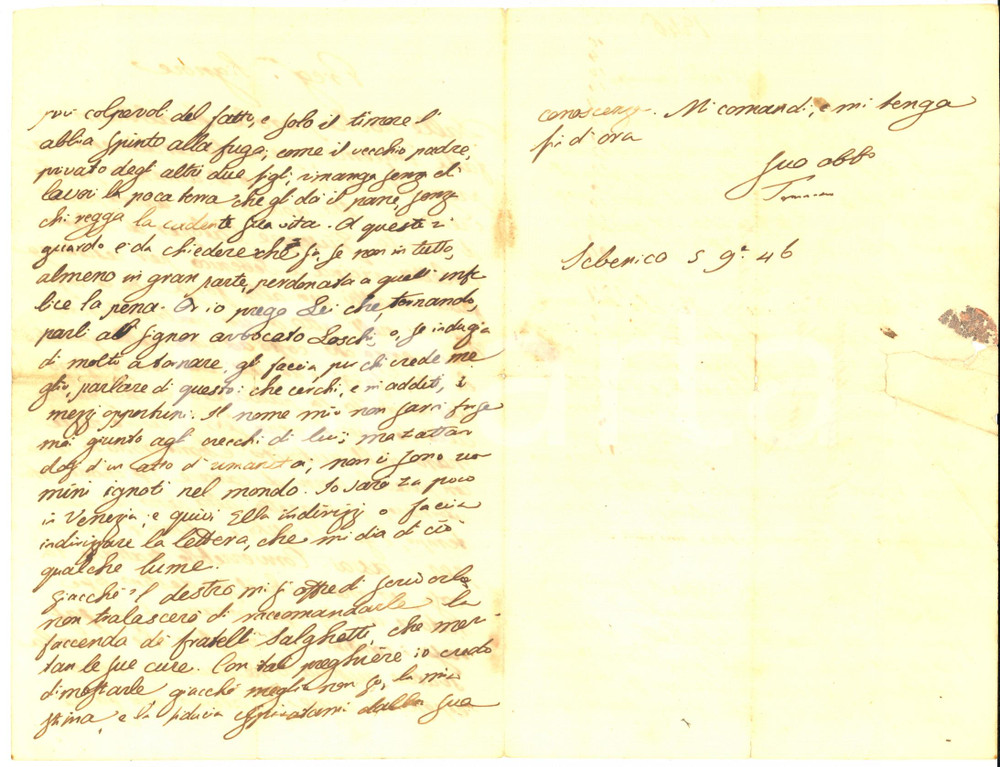 più colpevoli del fatto, e solo il timore li
abbia spinto alla fuga; come il vecchio padre,
privato degli altri due figli, rimanga senza chi
lavori la poca terra che gli dà il pane, senza
chi regga la cadente sua vita. A questo ri
guardo è da chiedere che sia, se non in tutto,
almeno in gran parte, perdonata a quell' infe
lice la pena. Or io prego Lei che, tornando,
parli al signor avvocato Loschi, o, se indugia
di molto a tornare, gli faccia per chi crede me
glio, parlare di questo: che cerchi, e m'additi, i
mezzi opportuni. Il nome mio non sarà forse
mai giunto agli orecchi di lui; ma trattan
dosi d'un atto d'umanità, non ci sono uo
mini ignoti nel mondo. Io sarò tra poco
in Venezia; e quivi Ella indirizzi o faccia
indirizzare la lettera, che mi dia di ciò
qualche lume.
Giacché 'l destro mi si offre di scriverle
non tralascerò di raccomandarle la
faccenda de' fratelli Salghetti, che meri
tan le sue cure. Con tali preghiere io credo
dimostrarle giacché meglio non so, la mia
stima, e la fiducia ispiratami dalla sua
conoscenza. Mi comandi; e mi tenga
fin d'ora
Suo obbº
Sebenico 5 9.e 46